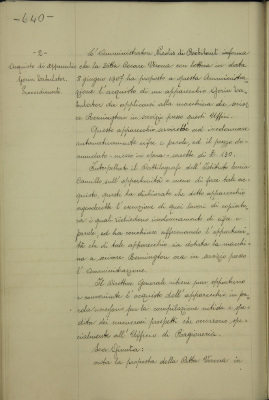 -640-
-2-
Acquisto di apparecchio
Gorin Tabulator
Provvedimenti
L'Amministratore Nicola de Bartolomeis informa
che la Ditta Cesare Verona con lettera in data
8 giugno 1907 ha proposto a questa Amministra-
zione l'acquisto di un apparecchio Gorin Ta-
bulator da applicarsi alla macchina da scri-
vere Remington in servizio presso questi Uffici.
Questo apparecchio servirebbe ad incolonnare
automaticamente cifre e parole, ed il prezzo do-
mandato, messo in opera, sarebbe di £. 130.
Interpellato il Dattilografo dell'Istituto
Camillo sull'opportunità o meno di fare tale ac-
quisto, questi ha dichiarato che detto apparecchio
agevolerebbe l'esecuzione di quei lavori di copiatu-
ra i quali richiedono incolonnamento di cifre e
parole, ed ha concluso affermando l'opportuni-
tà che di tale apparecchio sia dotata la macchi-
na a scrivere Remington ora in servizio presso
l'Amministrazione.
Il Direttore Generale ritiene pure opportuno
e conveniente l'acquisto dell'apparecchio in pa-
rola per la compilazione nitida e spe-
dita dei numerosi prospetti che occorrono spe-
cialmente all'Ufficio di Ragioneria.
La Giunta:
vista la proposta della Ditta Verona in